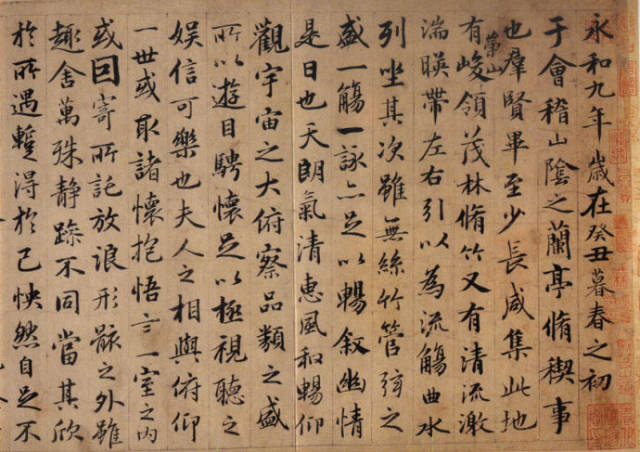 永和九年歲在癸丑暮春之初
于會稽山陰之蘭亭脩稧事
也羣賢畢至少長咸集此地
有崇山峻領茂林脩竹又有清流激
湍暎帶左右引以為流觴曲水
列坐其次雖無絲竹管弦之
盛一觴一詠亦足以暢叙幽情
是日也天朗氣清惠風和暢仰
觀宇宙之大俯察品類之盛
所以遊目騁懷足以極視聽之
娛信可樂也夫人之相與俯仰
一世或取諸懷抱悟言一室之内
或因寄所託放浪形骸之外雖
趣舍萬殊静躁不同當其欣
於所遇蹔得於己怏然自足不